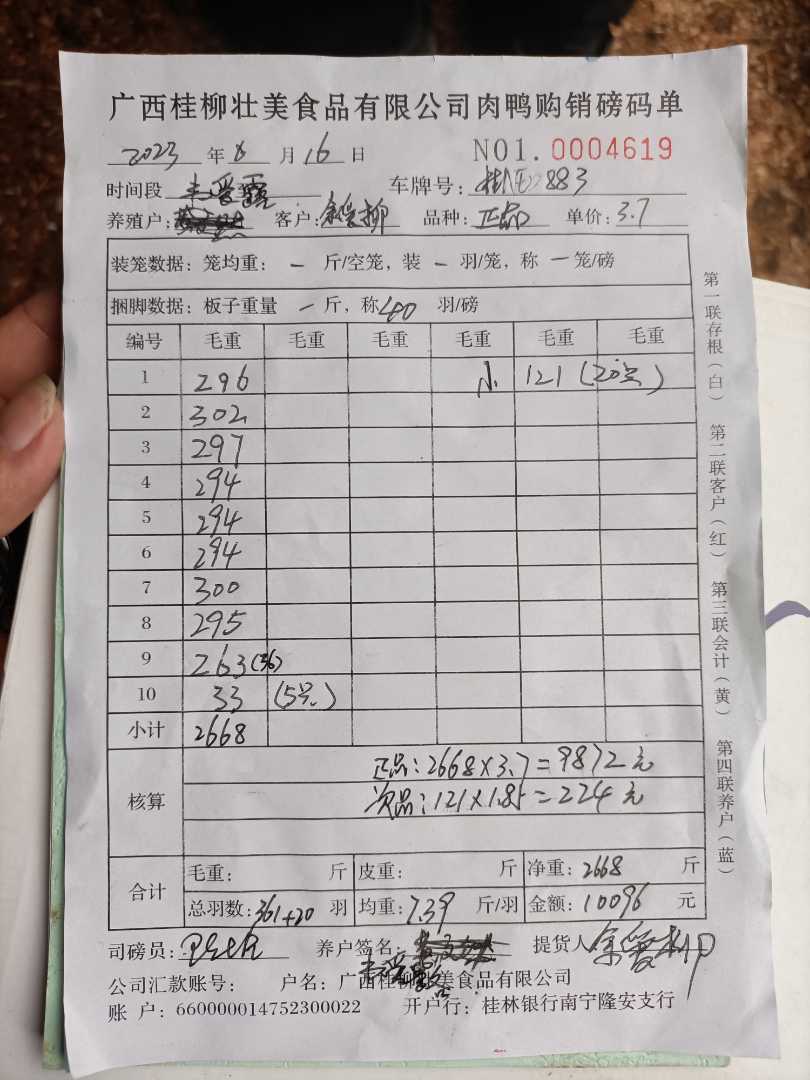 广西桂柳壮美食品有限公司肉鸭购销磅码单
2023年8月16日 NO1.0004619
时间段 车牌号: 883
养殖户: 客户:余爱柳 品种:正品 单价:3.7
装笼数据:笼均重: - 斤/空笼,装 - 羽/笼,称 - 笼/磅
捆脚数据:板子重量 - 斤,称40 羽/磅
编号 毛重 毛重 毛重 毛重 毛重 毛重
1 296 小 121 (20只)
2 302
3 297
4 294
5 294
6 294
7 300
8 295
9 263 (36)
10 33 (5只)
小计 2668
核算 正品:2668×3.7=9872元
次品:121×1.85=224元
合计 毛重: 斤 皮重: 斤 净重:2668 斤
总羽数:361+20 羽 均重:7.39 斤/羽 金额:10096 元
司磅员: 养户签名: 提货人 余爱柳
公司汇款账号: 户名:广西桂柳壮美食品有限公司
账 户:660000014752300022 开户行:桂林银行南宁隆安支行
第一联存根(白) 第二联客户(红) 第三联会计(黄) 第四联养户(蓝)